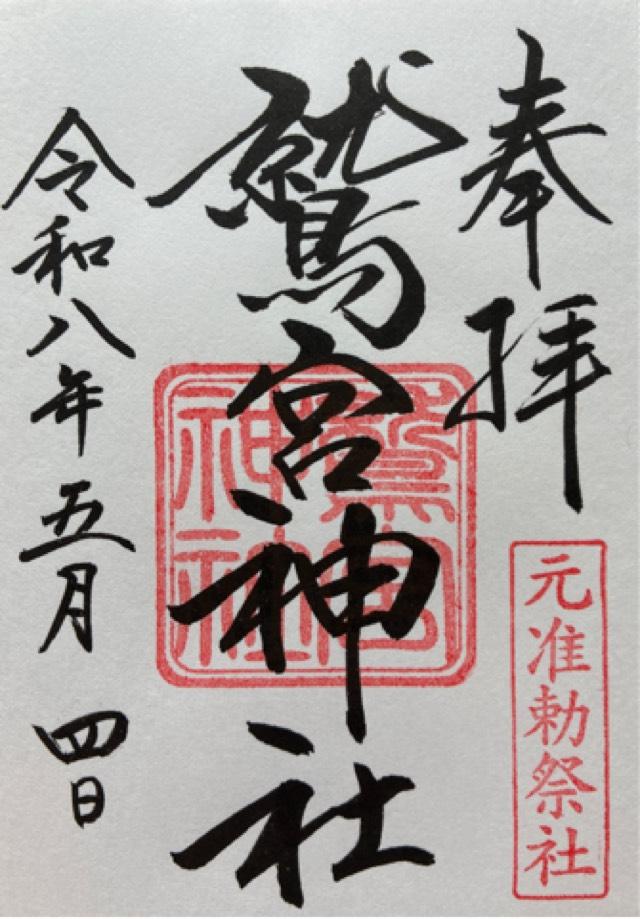 奉拝
元准勅祭社
鷲宮神社
鷲宮神社
令和八年五月四日